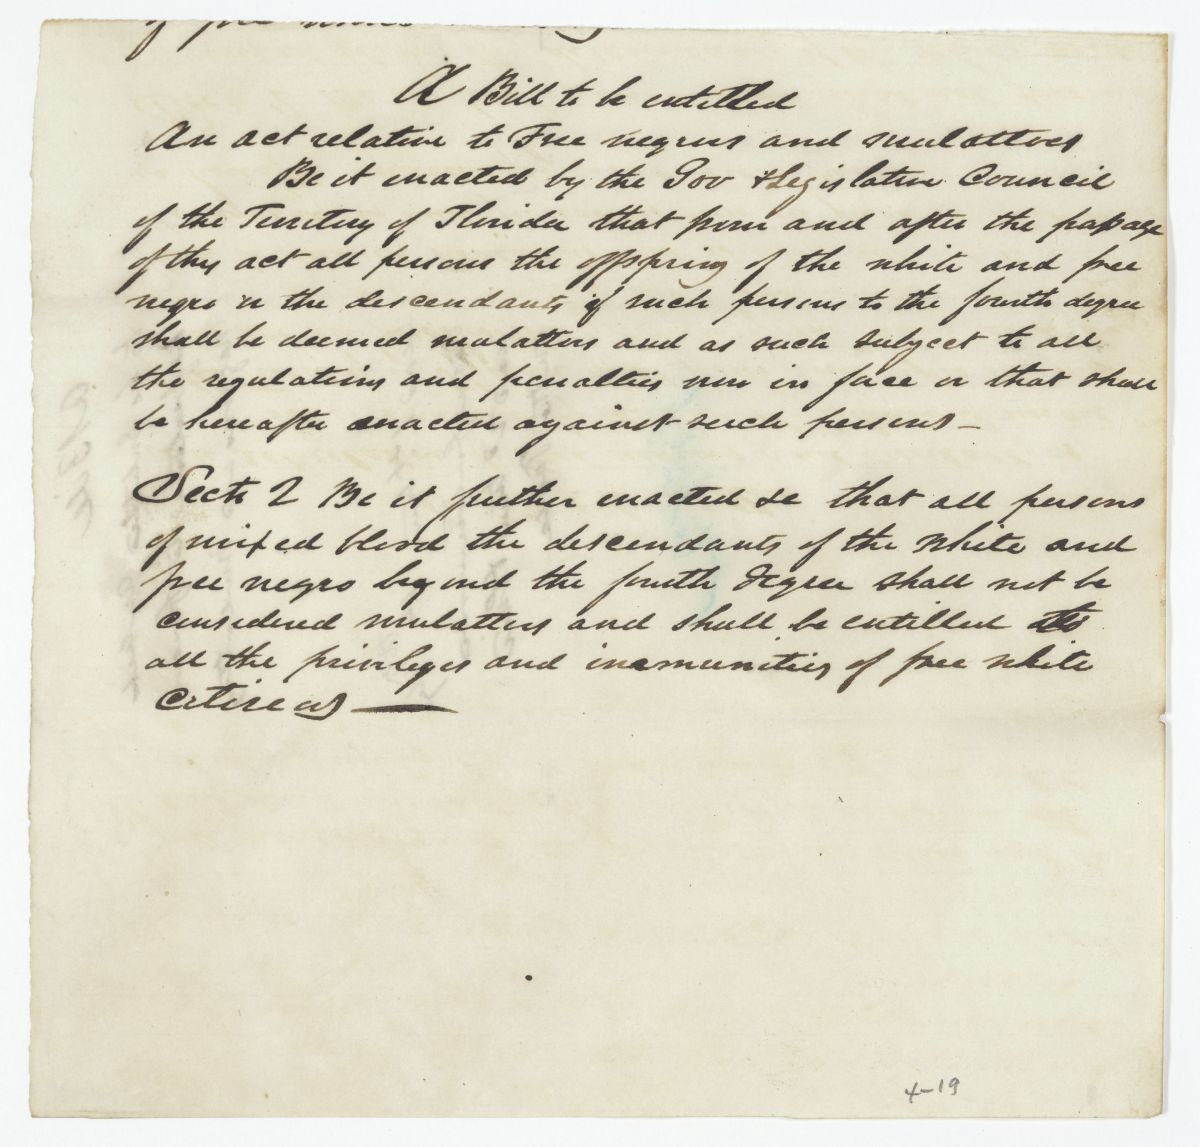 of free
A Bill to be entitled
An act relative to Free negros and mulattoes
Be it enacted by the Gov & Legislative Council
of the Territory of Florida that from and after the passage
of this act all persons the offspring of the white and free
negro or the descendants of such persons to the fourth degree
shall be deemed mulattos and as such subject to all
the regulations and penalties now in force or that shall
be hereafter enacted against such persons –
Sect 2 Be it further enacted &c that all persons
of mixed blood the descendants of the white and
free negro beyond the fourth degree shall not be
considered mulattos and shall be entitled to
all the privileges and immunities of free white
Citizens —
4-19